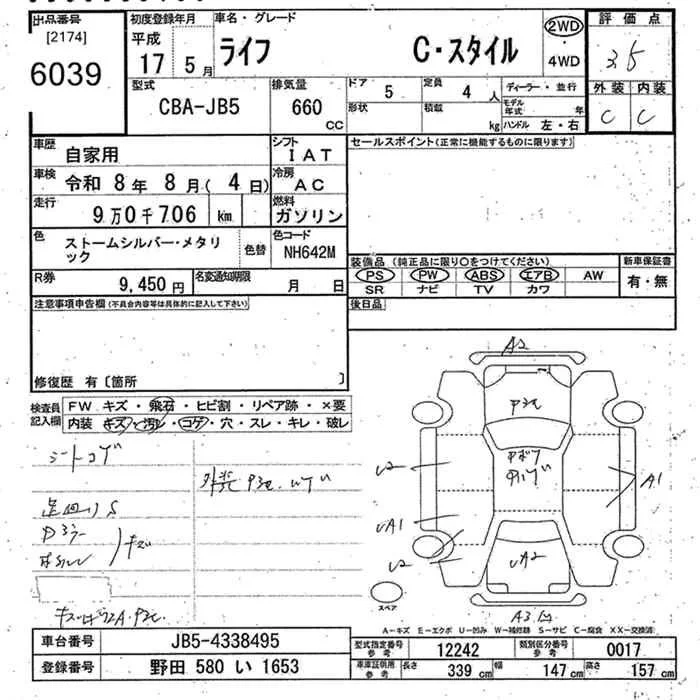 出品番号
[2174]
6039
初度登録年月
平成
17 5月
車名・グレード
ライフ C・スタイル
2WD
4WD
評価点
35
外装 内装
C C
型式
CBA-JB5
排気量
660 CC
ドア 5
定員 4人
形状
積載 kg
ディーラー・並行
モデル年式 年
ハンドル 左・右
車歴 自家用
シフト IAT
車検 令和 8年 8月( 4日)
冷房 AC
走行 9万0千706 km
燃料 ガソリン
色 ストームシルバー・メタリック
色替
色コード NH642M
R券 9,450円
名変通知期限 月 日
セールスポイント(正常に機能するものに限ります)
装備品(純正品に限り○をつけてください)
新車保証書
PS PW ABS エアB AW
SR ナビ TV カワ
有・無
後日品
注意事項申告欄(不具合内容等は具体的に記入して下さい)
修復歴 有〔箇所 〕
検査員記入欄
FW キズ・飛石・ヒビ割・リペア跡・×要
内装 キズ・汚レ・コゲ・穴・スレ・キレ・破レ
シートコゲ
キズ
A2
A1
A1
A2
A3
スペア
A-キズ E-エクボ U-凹み W-補修跡 S-サビ C-腐食 XX-交換済
車台番号 JB5-4338495
登録番号 野田 580 い 1653
型式指定番号 参考 12242
類別区分番号 参考 0017
車庫証明用 参考 長さ 339cm 幅 147cm 高さ 157cm